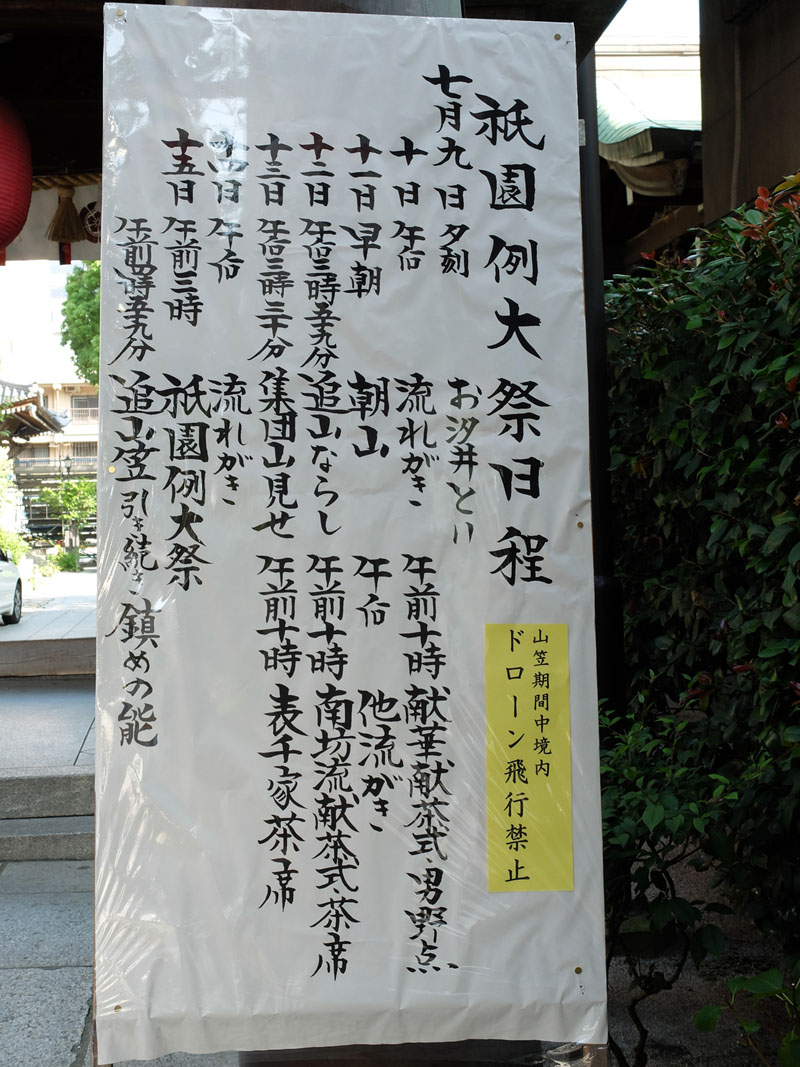 祇園例大祭日程
七月九日 夕刻 お汐井とり
十日 午后 流れがき 午前十時 献華献茶式・男野点
十一日 早朝 朝山 午后 他流がき
十二日 午后三時五十九分 追山ならし 午前十時 南坊流献茶式・茶席
十三日 午后三時三十分 集団山見せ 午前十時 表千家茶席
十四日 午后 流れがき
十五日 午前三時 祇園例大祭
午前四時五十九分 追山笠 引き続き 鎮めの能
山笠期間中境内
ドローン飛行禁止